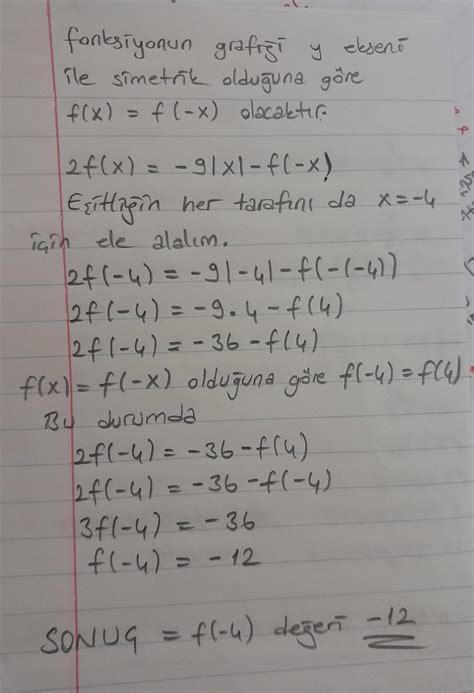 fonksiyonun grafiği y ekseni
ile simetrik olduğuna göre
f(x) = f(-x) olacaktır.
2f(x) = -9|x| - f(-x)
Eşitliğin her tarafını da x = -4
için ele alalım.
2f(-4) = -9|-4| - f(-(-4))
2f(-4) = -9.4 - f(4)
2f(-4) = -36 - f(4)
f(x) = f(-x) olduğuna göre f(-4) = f(4)
Bu durumda
2f(-4) = -36 - f(4)
2f(-4) = -36 - f(-4)
3f(-4) = -36
f(-4) = -12
SONUÇ = f(-4) değeri -12